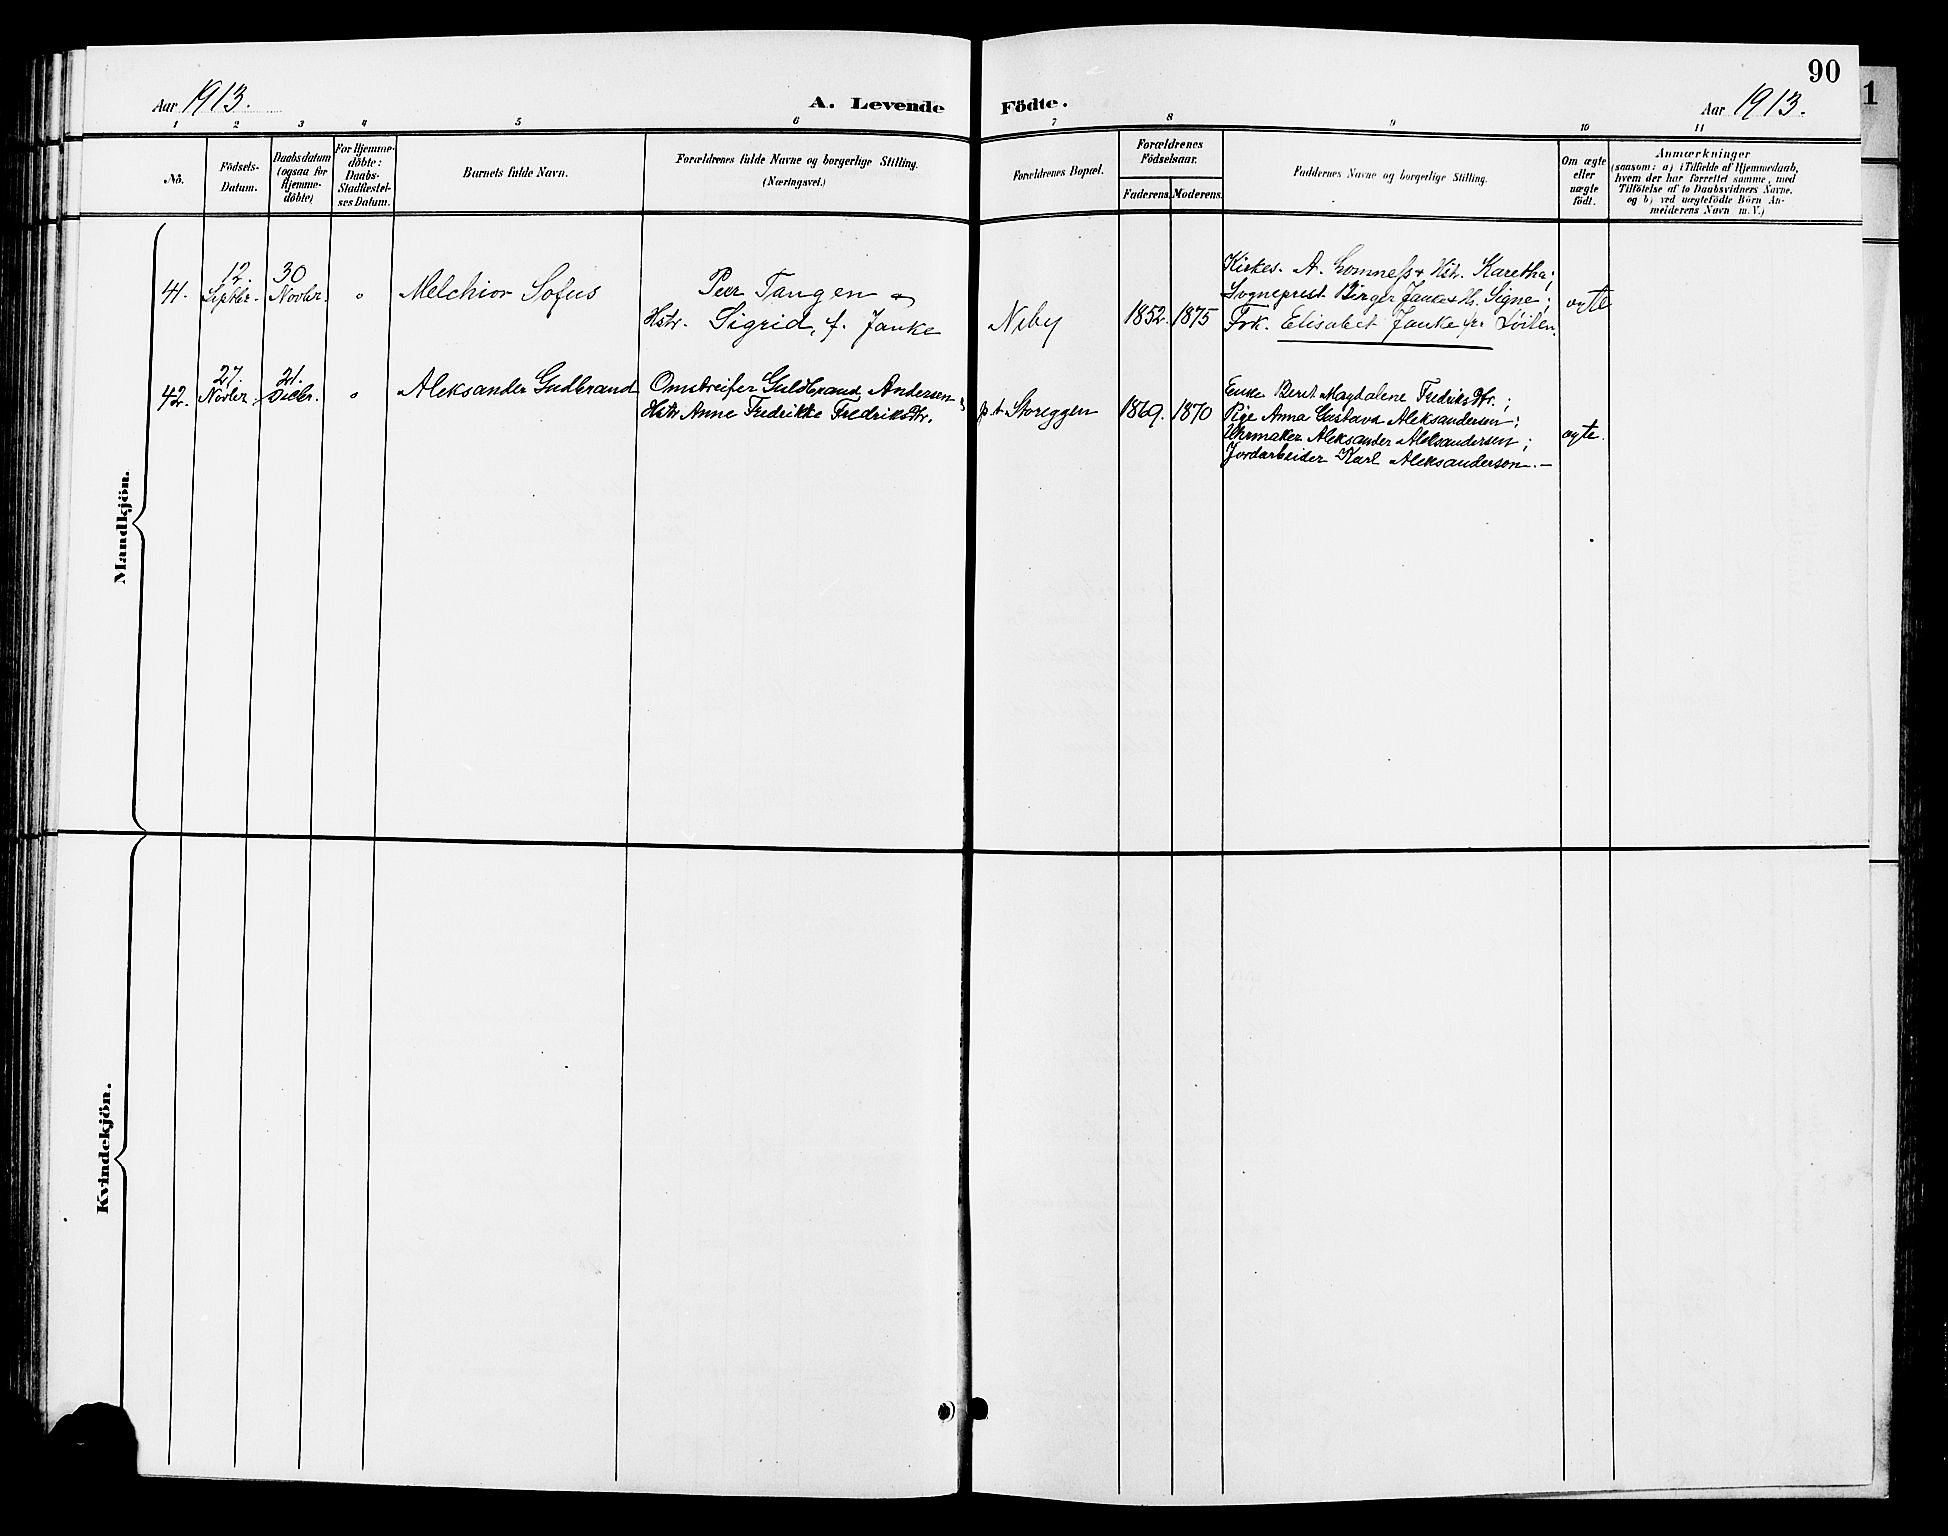 90
1
Aar 1913.
A. Levende Födte.
Aar 1913.
1 2 3 4 5 6 7 8 9 10 11
No.
Födsels-
Datum.
Daabsdatum
(ogsaa for
Hjemme-
döbte)
For Hjemme-
döbte:
Daabs-
Stadfæstel-
ses Datum.
Barnets fulde Navn.
Forældrenes fulde Navne og borgerlige Stilling.
(Næringsvei.)
Forældrenes Bopæl.
Forældrenes
Födselsaar.
Faderens. Moderens.
Faddernes Navne og borgerlige Stilling.
Om ægte
eller
uægte
födt.
Anmærkninger
(saasom: a) i Tilfælde af Hjemmedaab,
hvem der har forrettet samme, med
Tilföielse af to Daabsvidners Navne.
og b) ved uægtefödte Börn An-
melderens Navn m. V.)
Mandkjön.
41.
12.
Septbr.
30
Novbr.
"
Melchior Sofus
Peer Tangen &
Hstr. Sigrid, f. Janke
Neby
1852. 1875
Kirkes. A. Lomness & Hst. Karetha;
Sogneprest Birger Janke & Hs. Signe;
Frk. Elisabet Janke fra Löiten.
egte
42.
27.
Novbr.
21.
Decbr.
"
Aleksander Gudbrand
Omstreifer Guldbrand Andersen &
Hstr Anne Fredrikke Fredriksdtr.
p.t. Storeggen
1869. 1870
Enke Berit Magdalene Fredriksdtr.;
Pige Anna Gustava Aleksandersen;
Uhrmaker Aleksander Aleksandersen;
Jordarbeider Karl Aleksanderson.—
egte.
Kvindekjön.